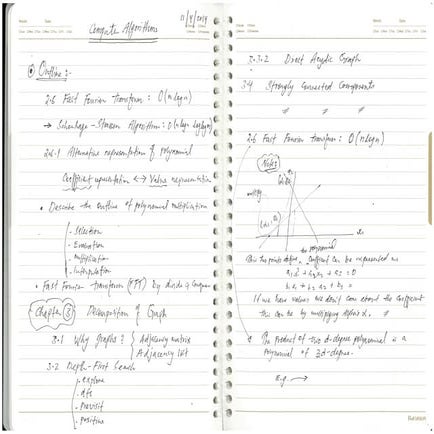 Computer Algorithms
11/4/2014
Outline :-
2.6 Fast Fourier Transform : O(n log n)
→ Schonhage-Strassen Algorithm : O(n log n
2.6.1 Alternative representation of polynomial
Coefficient representation ↔ Value representation
• Describe the outline of polynomial multiplication
- Selection
- Evaluation
- multiplication
- Interpolation
• Fast Fourier transform (FFT) by divide & conquer
Chapter 3 Decomposition of Graph
3.1 Why Graphs? Adjacency matrix
Adjacency list
3.2 Depth-First Search
- explore
- dfs
- previsit
- postvisit
3.3.2 Direct Acyclic Graph
3.4 Strongly Connected Components
2.6 Fast Fourier transform : O(n log n)
Note:
the polynomial
the points define, coefficient can be represented as
If we have values we don't care about the coefficient
this can be by multiplying
• The product of two d-degree polynomial is a
Polynomial of 2d-degree.
E.g →